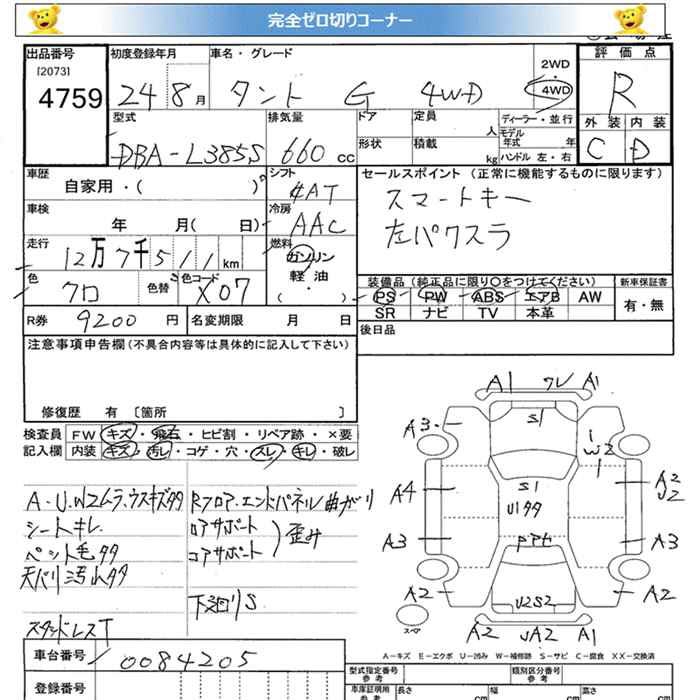 完全ゼロ切りコーナー
出品番号
[2073]
4759
初度登録年月
24 8月
車名・グレード
タント G 4WD
2WD
4WD
評価点
R
外装 内装
C D
型式
DBA-L385S
排気量
660 cc
ドア
形状
定員
人
積載
kg
ディーラー・並行
モデル年式 年
ハンドル 左・右
車歴
自家用・( )
シフト
4AT
車検
年 月( 日)
冷房
AAC
走行
12万7千511km
燃料
ガソリン
軽油
( ・ )
色
クロ
色替
色コード
X07
セールスポイント (正常に機能するものに限ります)
スマートキー
左パワスラ
装備品 (純正品に限り〇をつけてください)
PS PW ABS エアB AW
SR ナビ TV 本革
新車保証書
有・無
後日品
R券 9200 円
名変期限 月 日
注意事項申告欄 (不具合内容等は具体的に記入して下さい)
修復歴 有 〔箇所 〕
検査員 FW キズ・飛石・ヒビ割・リペア跡・×要
記入欄 内装 キズ・汚レ・コゲ・穴・スレ・キレ・破レ
A-U.W2ムラ.ウスキズタタ
シートキレ.
ペット毛タタ
天バリ汚レタタ
スタッドレスT
Rフロア.エンドパネル曲がり
ロアサポート
コアサポート
歪み
下廻りS
A1 ワレ A1
S1
A3
W2
A4
S1
U1タタ
A2
U2
A3
A3
A2
U2S2
A2
スペア
A2 UA2 A1
A-キズ E-エクボ U-凹み W-補修跡 S-サビ C-腐食 XX-交換済
車台番号
0084205
登録番号
型式指定番号
参考
類別区分番号
参考
車庫証明用
参考
長さ
cm
幅
cm
高さ
cm